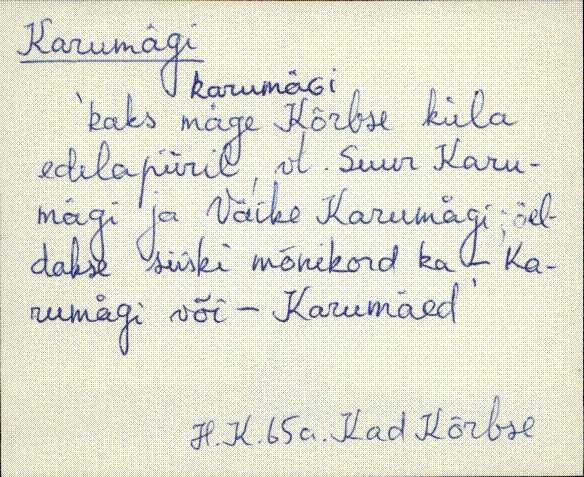 Karumägi
karumäGi
'kaks mäge Kõrbse küla
edelapiiril, vt. Suur Karu-
mägi ja Väike Karumägi; öel-
dakse siiski mõnikord ka – Ka-
rumägi või – Karumäed'
H.K. 65a. Kad Kõrbse